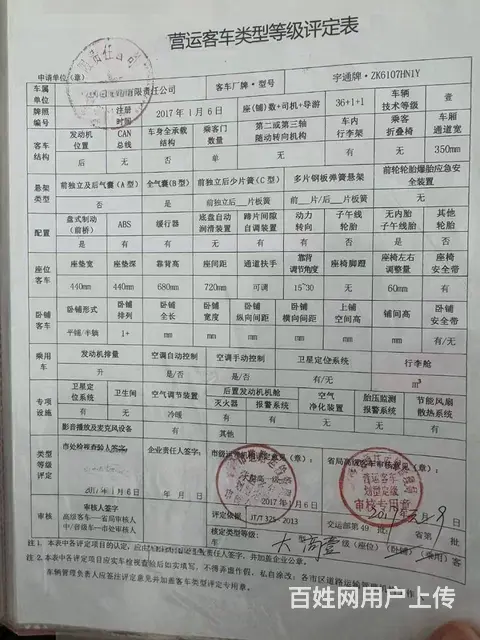 营运客车类型等级评定表
申请单位(章)
车属单位 有限责任公司 客车厂牌·型号 宇通牌·ZK6107HN1Y
牌照编号 注册时间 2017年1月6日 座(铺)数+司机+导游 36+1+1 车辆技术等级 壹
客车结构 发动机位置 CAN总线 车身全承载结构 乘客门数量 第二或第三轴随动转向机构 车内行李架 乘客折叠椅 车厢通道宽
后 无 否 单 无 有 无 350mm
悬架类型 前独立及后气囊(A型) 全气囊(B型) 前独立后少片簧(C型) 多片钢板弹簧悬架 前轮轮胎爆胎应急安全装置
否 是 前独立后__片板簧 前__片/后__片板簧 无
配置 盘式制动(前桥) ABS 缓行器 底盘自动润滑装置 蹄片间隙自调装置 动力转向 子午线轮胎 无内胎子午线轮胎 其他轮胎
是 有 有 无 有 有 否 是 否
座位客车 座垫宽 座垫深 靠背高 座间距 通道扶手 靠背调节角度 座椅脚蹬 座椅左右调整量 座椅安全带
440mm 440mm 680mm 720mm 可调 15~30 无 60mm 有
卧铺客车 卧铺形式 卧铺排列 卧铺全长 卧铺宽度 卧铺纵向间距 卧铺横向间距 上铺空间高 铺间高 卧铺安全带
平铺/半躺 1+ mm mm mm mm mm mm 有/无
乘用车 发动机排量 空调自动控制 空调手动控制 卫星定位系统 行李舱
升 是/否 是/否 有/无 m³
专项设施 卫星定位系统 卫生间 空气调节装置 后置发动机机舱 空气净化装置 胎压监测报警系统 节能风扇散热系统
灭火器 报警系统
有 无 冷暖 有 有 无 无 有
影音播放及麦克风设备 有 其他
类型等级评定 企业责任人签字: 市级 意见(章): 省局高级客车审核意见(章):
2017年1月6日 年 月 日 2017年1月6日
营运客车
类型划定级
审核专用章
审核 审核人签字 高级客车一省局审核人 中/普级车一市处审核人 评定依据 JT/T 325-2013 交运部第49批 省第 批
核定 大 高壹 级(座位)(卧铺)(乘用)客
注1.本表中各评定项目的认定,应由 签字,并加盖企业公章。
注2.本表中各评定项目应实车检视查验后如实填写,不得弄虚作假、私自涂改;各市区道路运输管理
车辆管理负责人签注评定意见并加盖客车类型评定专用章。
百姓网用户上传